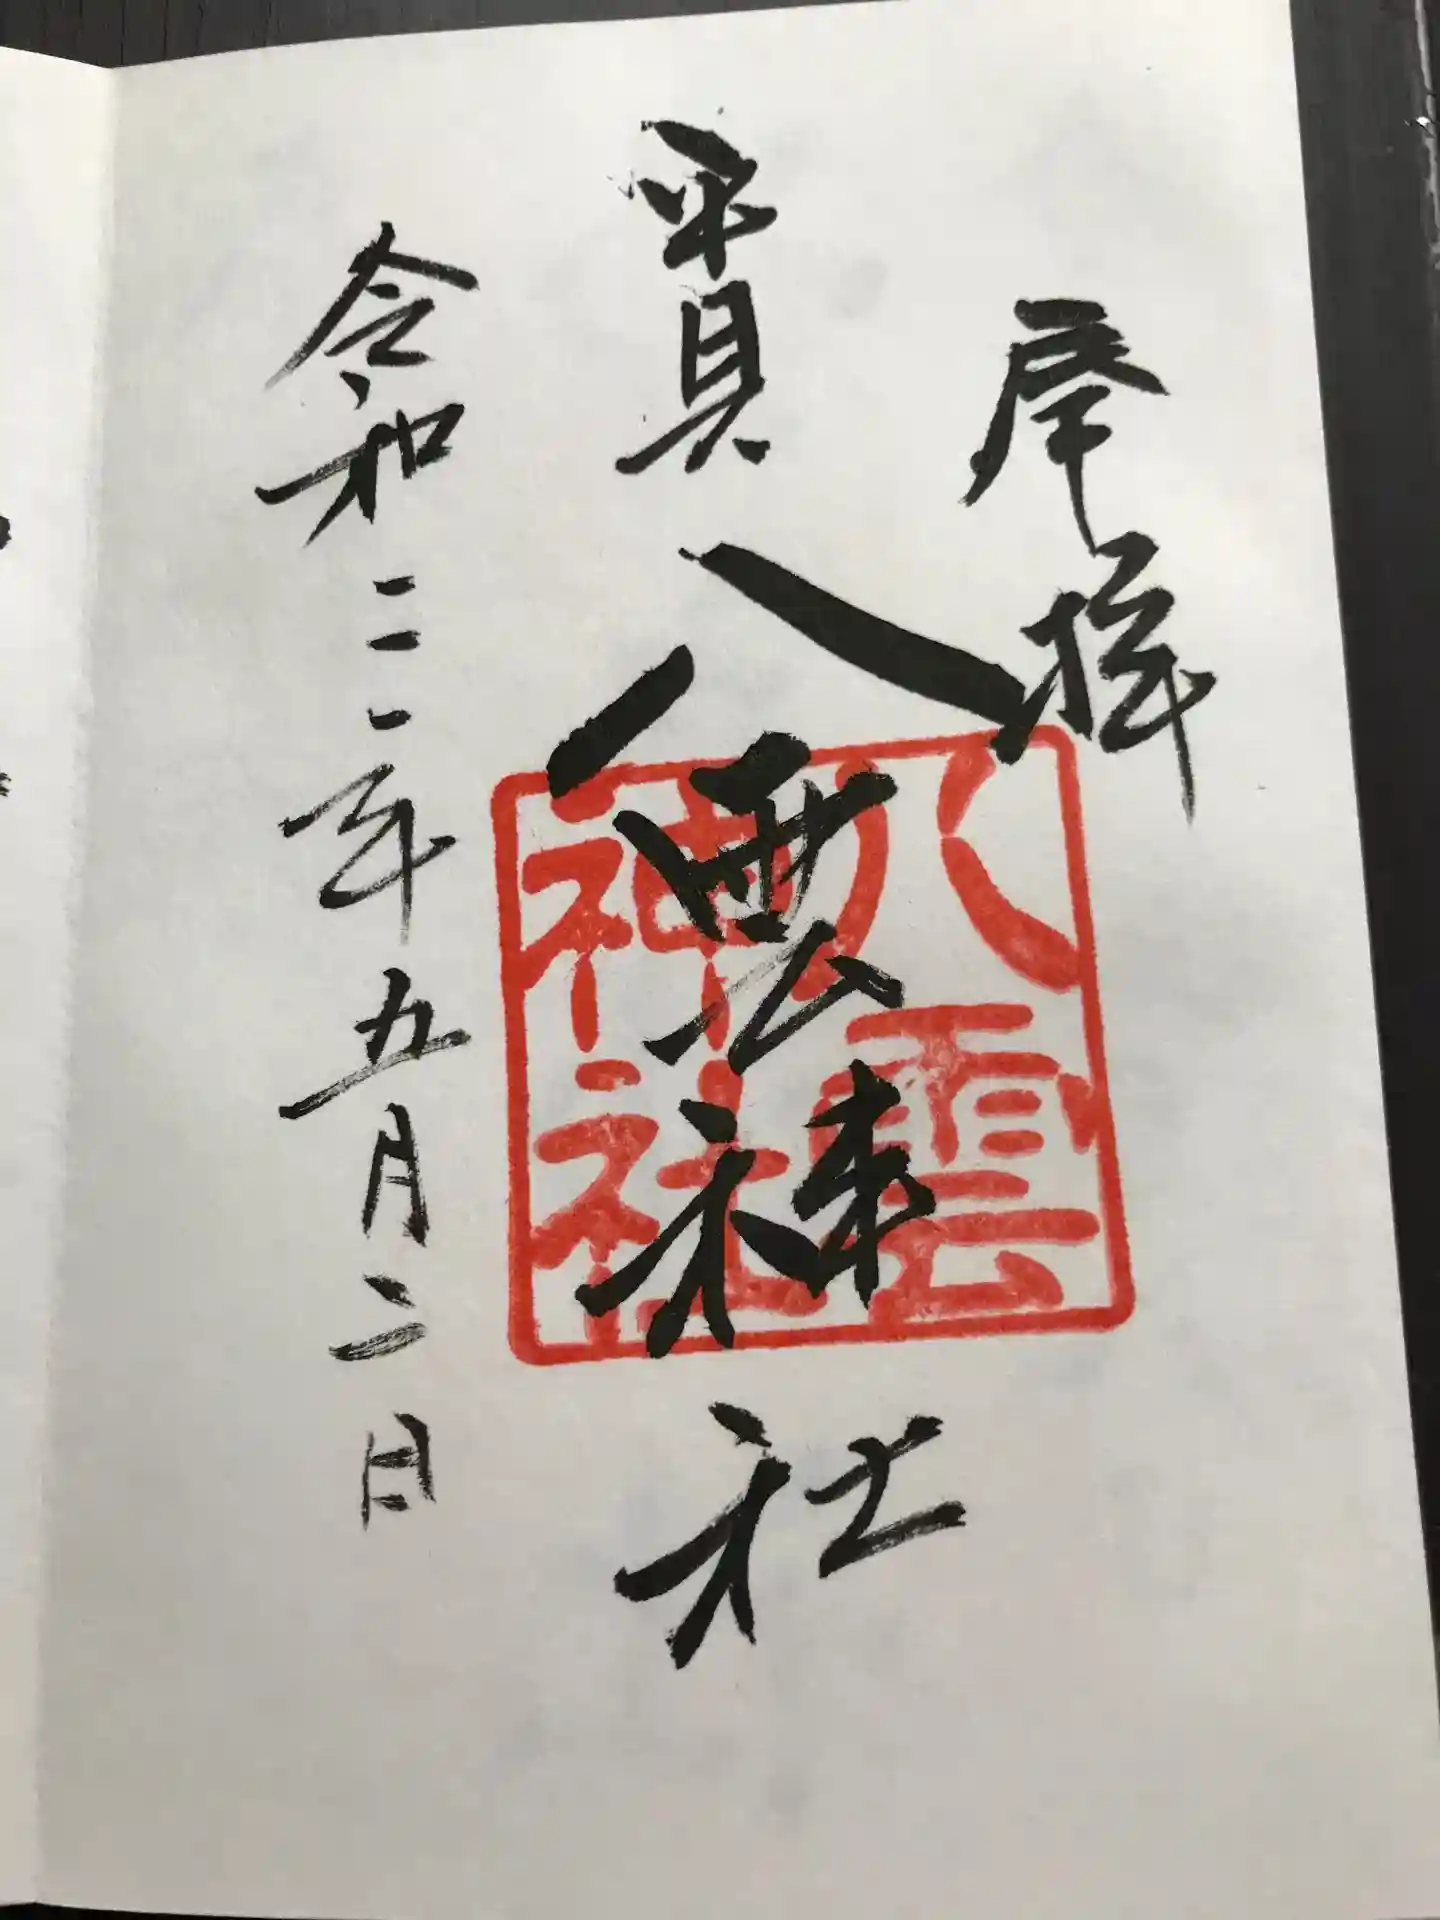 奉拝
八雲神社
令和三年五月二日
八雲
神社